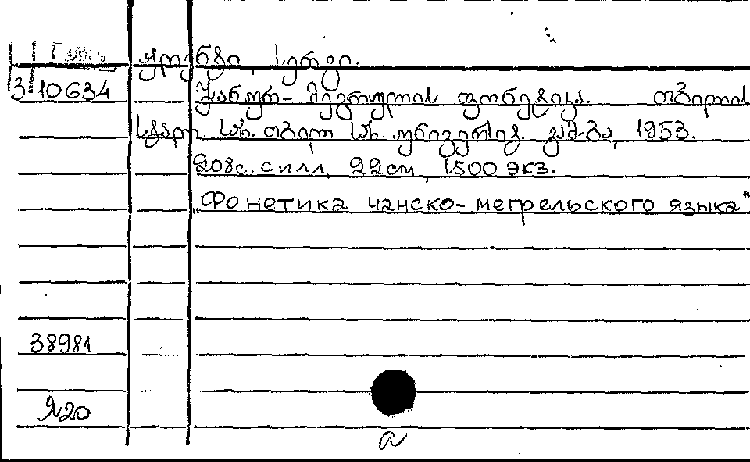 ჟღენტი, სერგი.
3 10634 ჭანურ-მეგრულის ფონეტიკა. თბილის
სტალ. სახ. თბილ. სახ. უნივერსიტ. გამ-ბა, 1953.
208с. с илл, 22см, 1500 экз.
Фонетика чанско-мегрельского языка"
38981
220
а